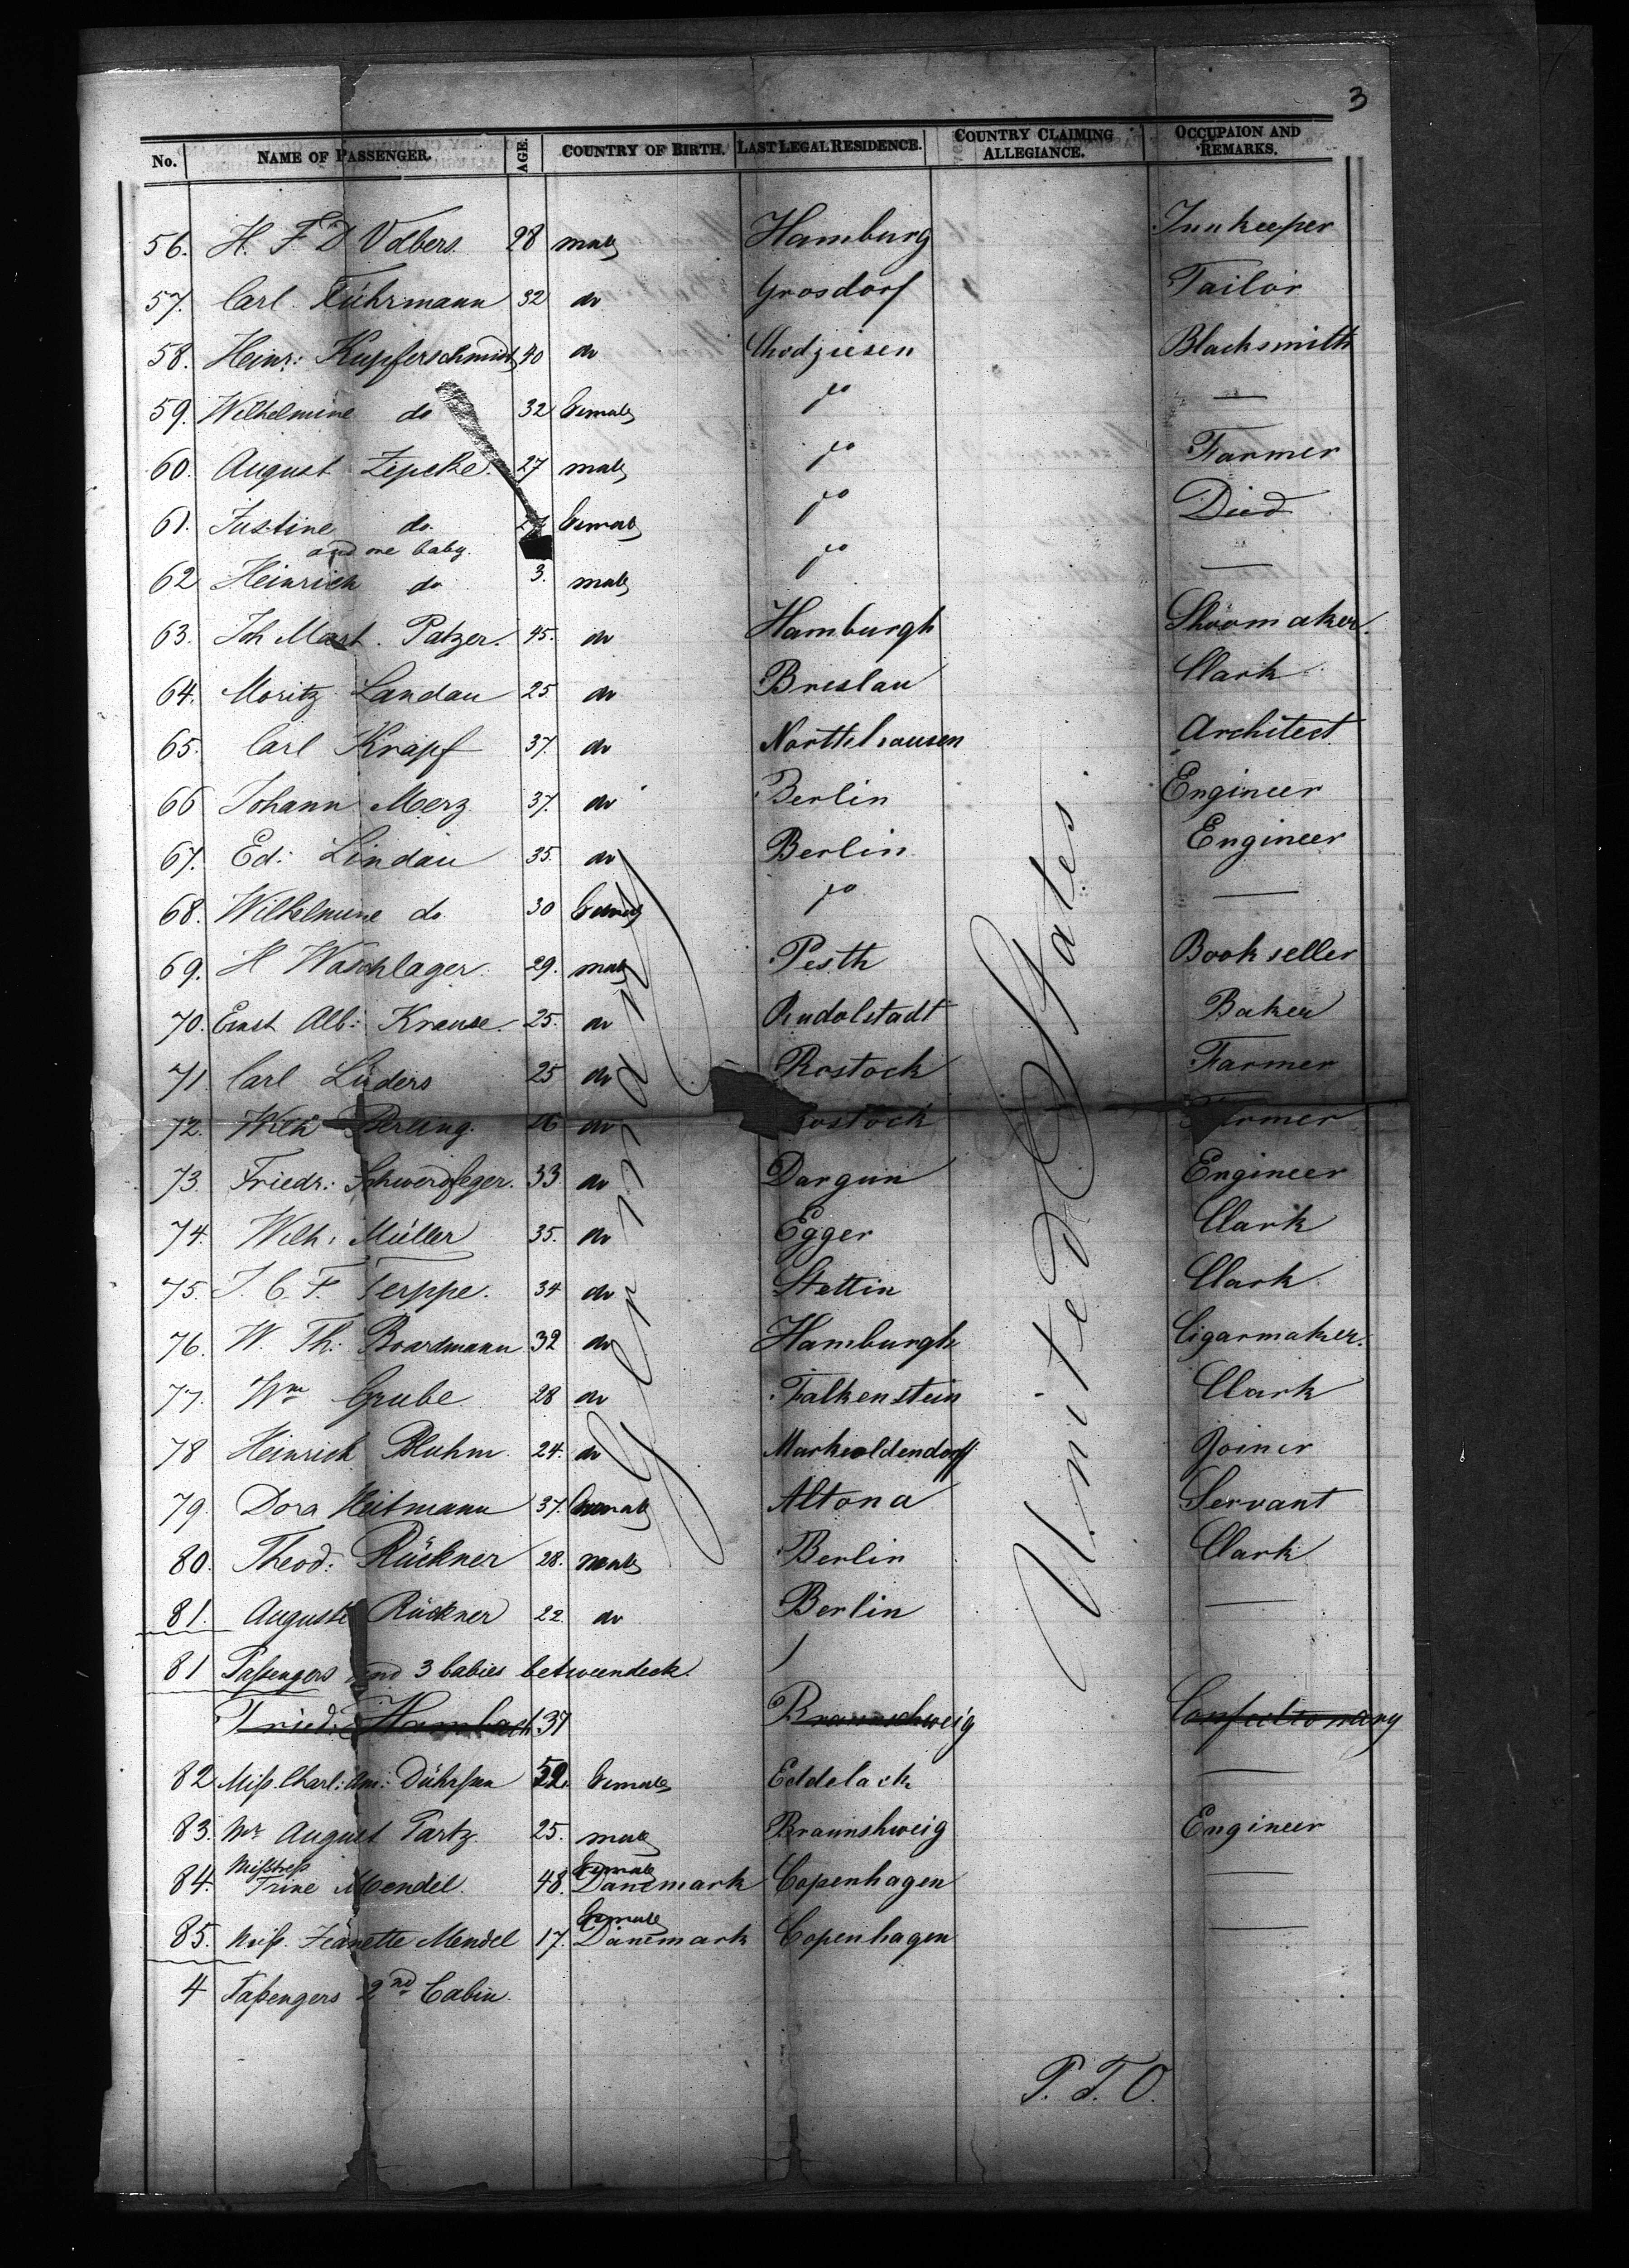 3
No. NAME OF PASSENGER. AGE. COUNTRY OF BIRTH. LAST LEGAL RESIDENCE. COUNTRY CLAIMING ALLEGIANCE. OCCUPAION AND REMARKS.
56. H. F. D. Volbers 28 male Hamburg Innkeeper
57. Carl Führmann 32 do Grosdorf Tailor
58. Heinr: Kupferschmidt 40 do Chodziesen Blacksmith
59. Wilhelmine do 32 female do —
60. August Zepcke 27 male do Farmer
61. Justine do. female do Died
and one baby.
62 Heinrich do 3. male do —
63. Joh Mart. Patzer. 45. do Hamburgh Shoomaker.
64. Moritz Landau 25 do Breslau Clark
65. Carl Krapf 37. do Northhausen Architect
66 Johann Merz 37. do Berlin Engineer
67. Ed: Lindau 35. do Berlin Engineer
68. Wilhelmine do 30 female do —
69. H Waschlager 29. male Pesth Bookseller
70. Ernst Alb: Krause 25. do Rudolstadt Baker
71. Carl Lüders 25 do Rostock Farmer
72. Wilh 26 do Rostock Farmer
73. Friedr: Schwerdfeger. 33. do Dargun Engineer
74. Wilh: Müller 35. do Egger Clark
75. J. C. F. Terppe. 34 do Stettin Clark
76. W. Th: Boardmann 32 do Hamburgh Cigarmaker.
77. Wm Grube 28 do Falkenstein Clark
78 Heinrich Bluhm 24. do Markoldendorff Joiner
79. Dora Heitmann 37. female Altona Servant
80. Theod: Rückner 28. male Berlin Clark
81. Auguste Rückner 22. do Berlin —
Germany
United States.
81 Paßengers and 3 babies betweendeck.
Fried: Hambach 37 Braunschweig Confectionary
82 Miß. Charl: Am: Dührßen 52. female Eddelack —
83. Mr August Partz 25. male Braunshweig Engineer
Mißtreß female
84. Trine Mendel. 48. Danemark Copenhagen —
female
85. Miß. Jeanette Mendel 17. Danemark Copenhagen —
4 Paßengers 2nd Cabin.
P. T. O.